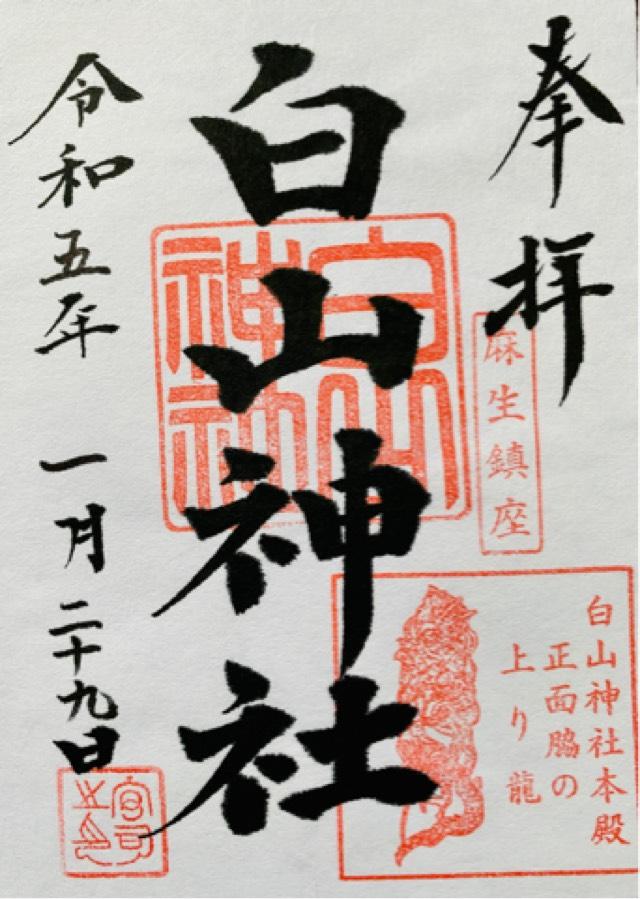 奉拝
麻生鎮座
白山神社本殿
正面脇の
上り龍
白山神社
白山神社
令和五年 一月 二十九日
宮司之印